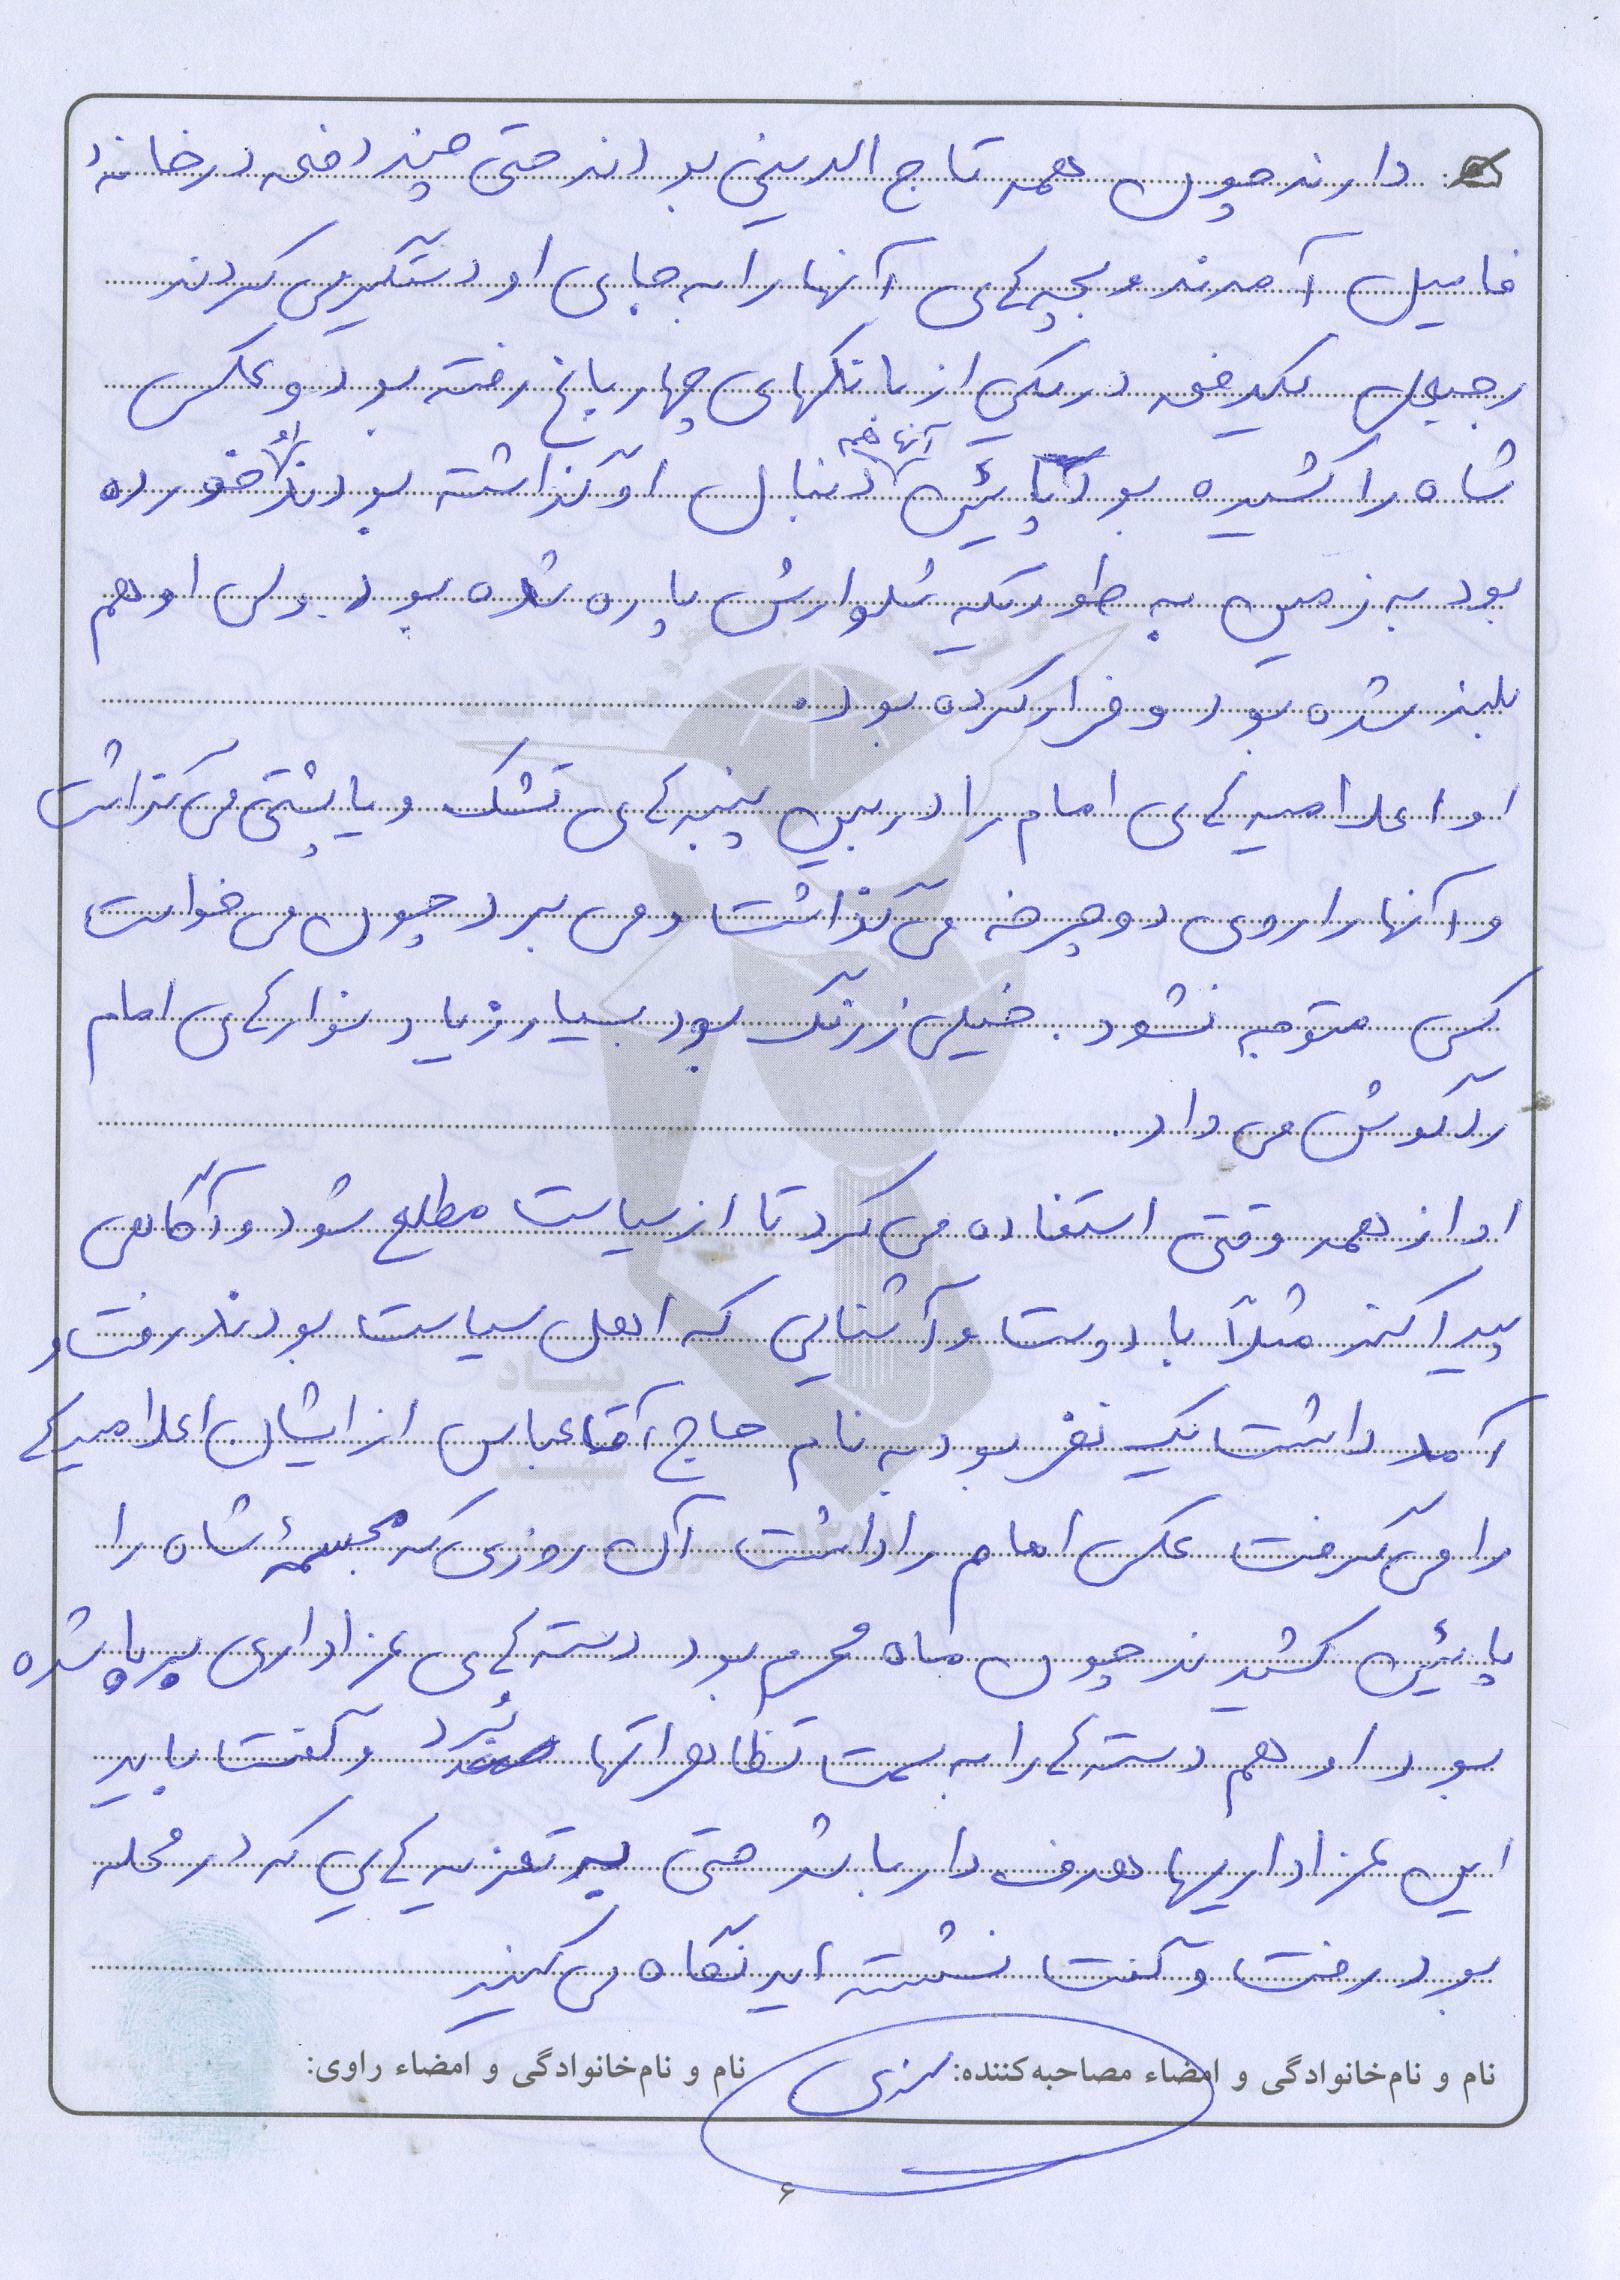 دارند چون همه تاج الدینی بودند حتی چند دفعه در خانه
فامیل آمدند و بچه‌های آنها را به جای او دستگیر می‌کردند
یکدفعه در یکی از بانکهای چهارباغ رفته بود و عکس
شاه را کشیده بود پائین آنها هم دنبال او گذاشته بودند او خورده
بود به زمین به طوریکه شلوارش پاره شده بود ولی او هم
بلند شده بود و فرار کرده بود.
او اعلامیه‌های امام را در بین پنبه‌های تشک و یا پشتی می‌گذاشت
و آنها را روی دوچرخه می‌گذاشت و می‌برد چون می‌خواست
کسی متوجه نشود. خیلی زرنگ بود بسیار زیاد نوارهای امام
را گوش می‌داد.
او از همه وقتی استفاده می‌کرد تا از سیاست مطلع شود و آگاهی
پیدا کند مثلاً با دوست و آشنایی که اهل سیاست بودند رفت و
آمد داشت یک نفر بود به نام حاج آقا عباس از ایشان اعلامیه‌ها
را می‌گرفت عکس امام را داشت آن روزی که مجسمهٔ شاه را
پائین کشیدند چون ماه محرم بود دسته‌های عزاداری برپا شده
بود او هم دسته‌ها را به سمت تظاهراتها بُرد و گفت باید
این عزاداریها هدف دار باشد حتی به تعزیه‌هایی که در محله
بود رفت و گفت نشسته اید نگاه می‌کنید
نام و نام‌خانوادگی و امضاء مصاحبه‌کننده:
نام و نام‌خانوادگی و امضاء راوی:
۶